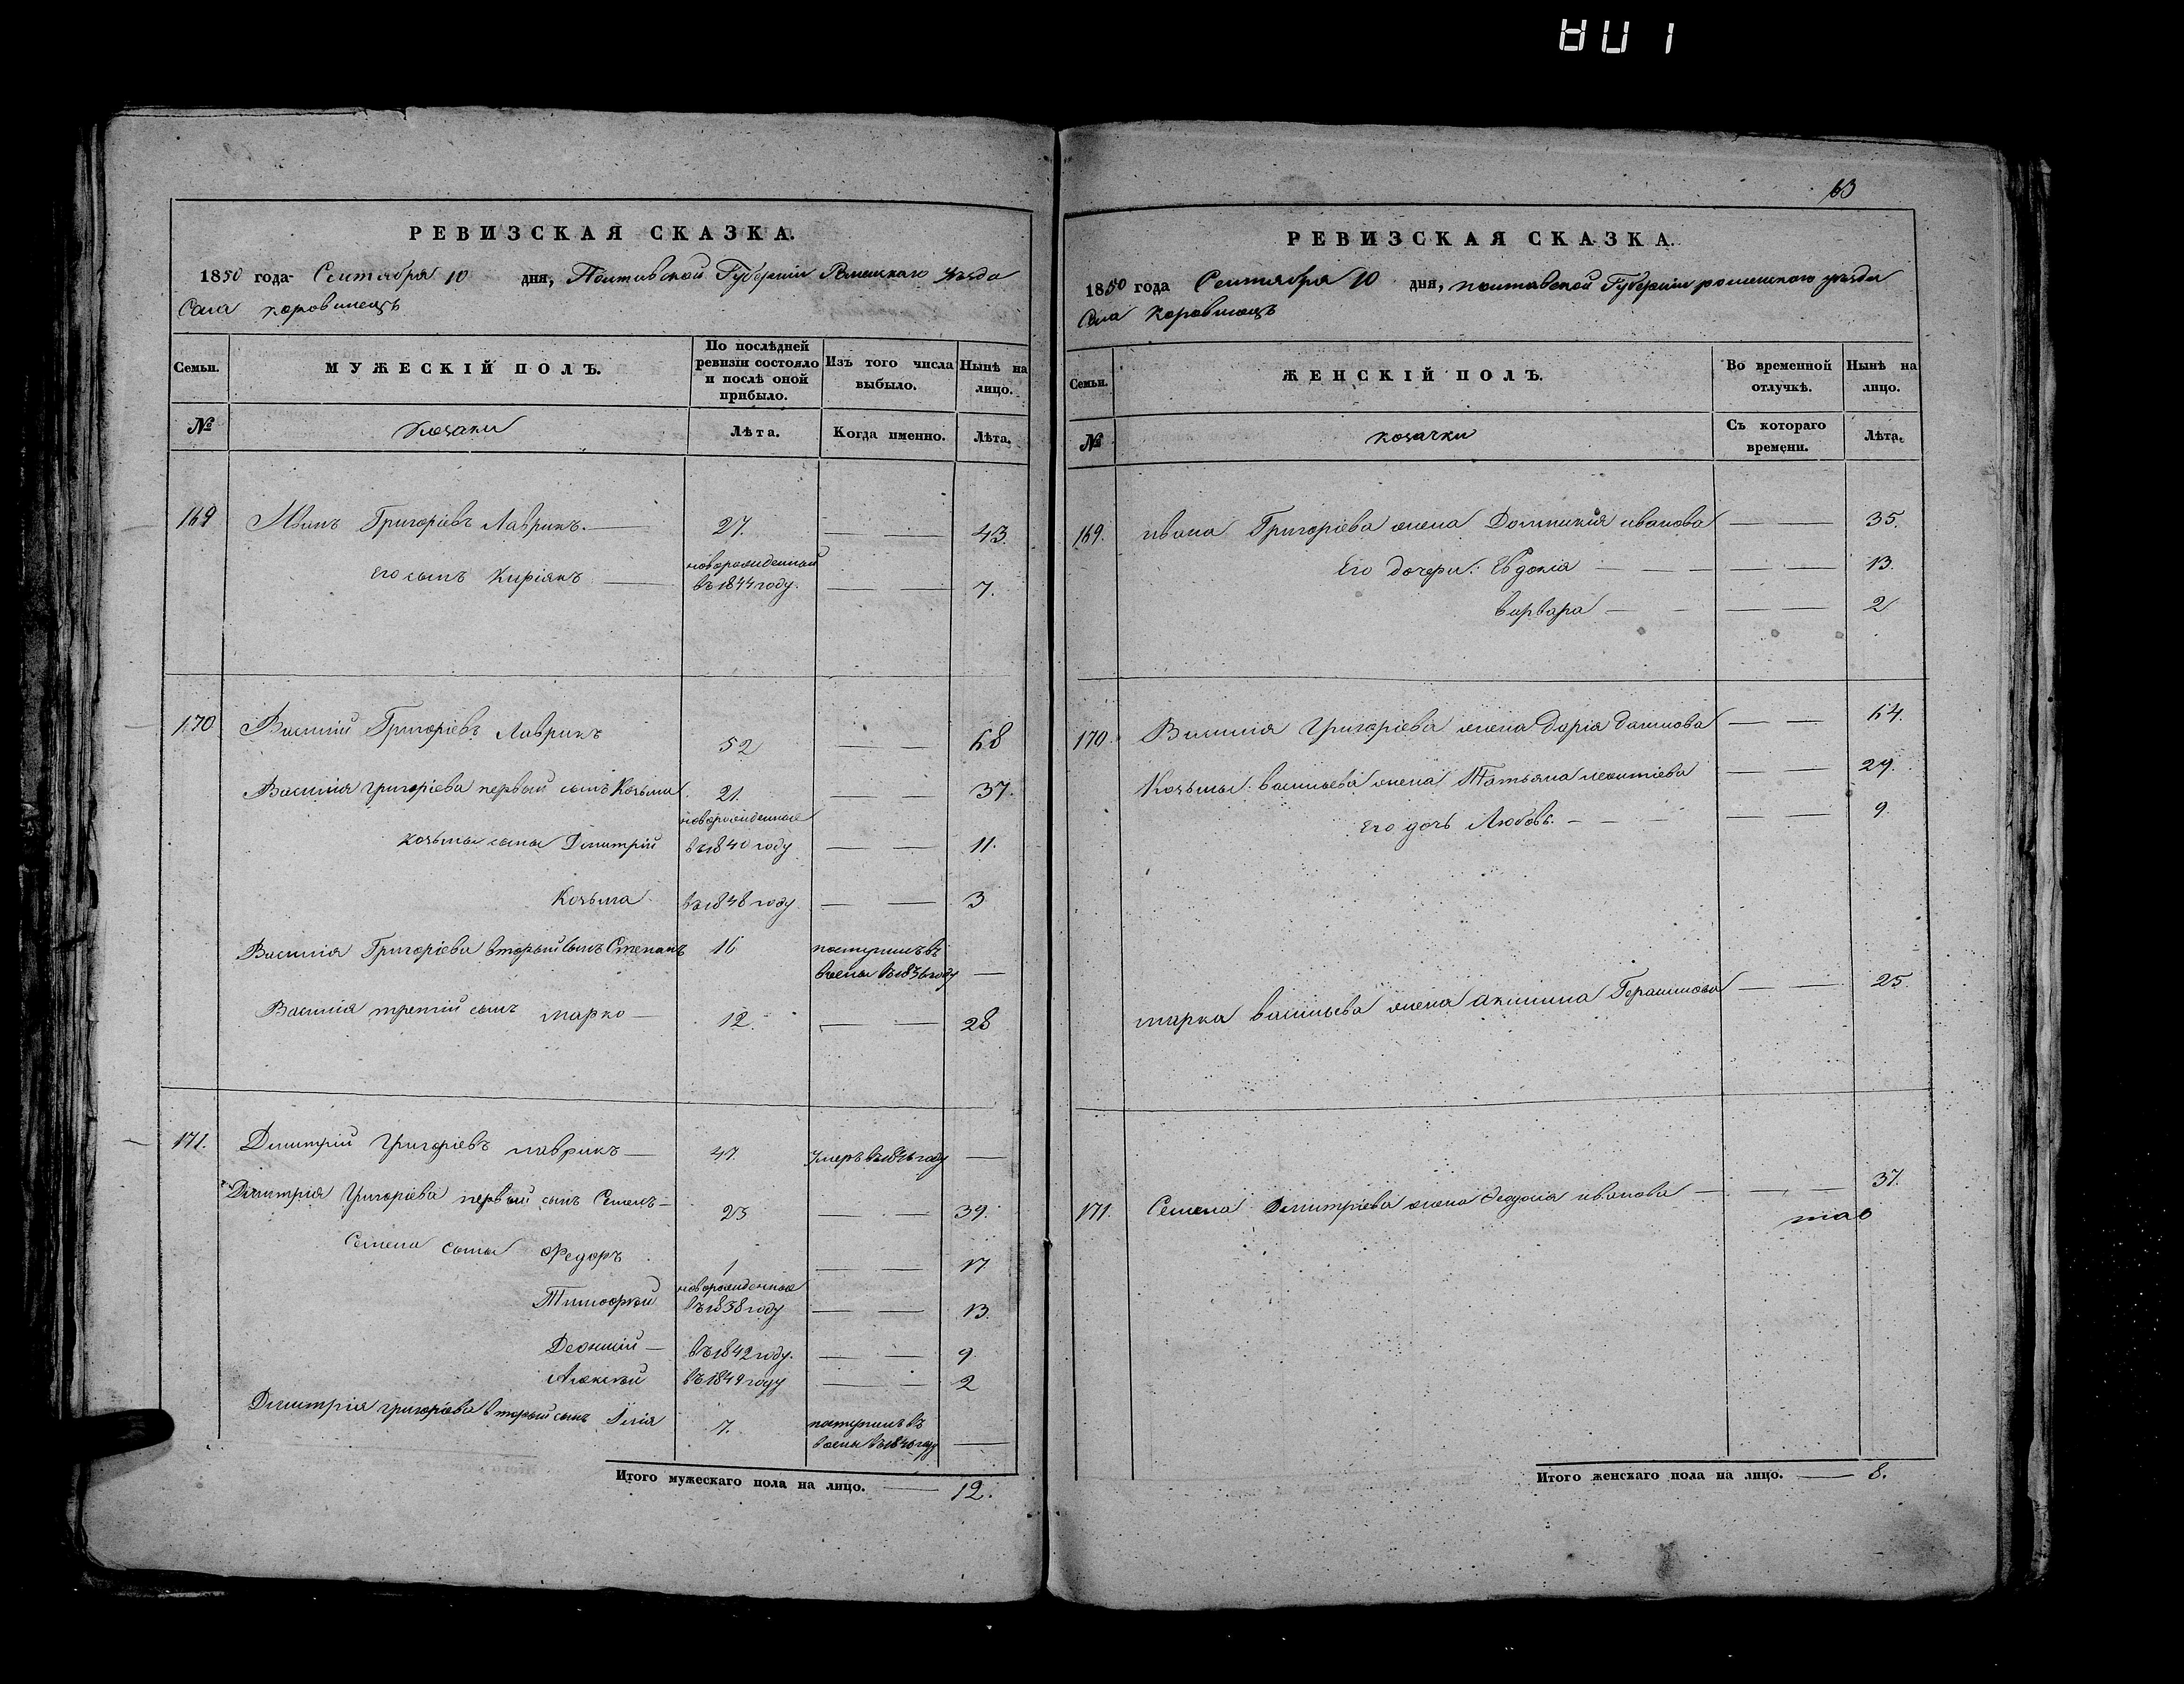 63
РЕВИЗСКАЯ СКАЗКА.
1850 года Сентября 10 дня, Полтавской Губерніи Роменскаго уѣзда
Села коровинецъ
Семьи. МУЖЕСКІЙ ПОЛЪ. По послѣдней ревизіи состояло и послѣ оной прибыло. Изъ того числа выбыло. Нынѣ на лицо.
№ Козаки Лѣта. Когда именно. Лѣта.
169 Иванъ Григоріевъ Лаврикъ. 27. 43.
Его сынъ Киріякъ новорожденный въ 1844 году. 7.
170 Василій Григоріевъ Лаврикъ 52 68
Василія григоріева первый сынъ Козьма 21. 37.
новорожденные
козьмы сыны Димитрій въ 1840 году 11.
Козьма въ 1848 году 3
Василія Григоріева вторый сынъ Степанъ 16 поступилъ въ
военн въ 1836 году
Василія третій сынъ марко 12. 28
171. Димитрій григоріевъ лаврикъ 47. умеръ въ 1846 году
Димитрія григоріева первый сынъ Семенъ 23 39.
Семена сыны Федоръ 1 17.
новорожденные
Тимофѣй въ 1838 году 13.
Леонтій въ 1842 году. 9.
Алексѣй въ 1849 году 2
Димитрія григоріева вторый сынъ Илія 7. поступилъ въ
военн въ 1840 году
Итого мужескаго пола на лицо. 12.
РЕВИЗСКАЯ СКАЗКА.
1850 года Сентября 10 дня, полтавской Губерніи роменскаго уѣзда
Села Коровинецъ
Семьи. ЖЕНСКІЙ ПОЛЪ. Во временной отлучкѣ. Нынѣ на лицо.
№ козачки Съ котораго времени. Лѣта.
169. ивана Григоріева жена Домникія иванова 35.
Его дочери: Евдокія 13.
варвара 2
170. Василія григоріева жена дарія данилова 64.
Козьмы васильева жена Татьяна леонтіева 29.
Его дочь Любовь. 9.
марка васильева жена акилина Герасимова 25
171. Семена Димитріева жена Федосія иванова 37.
Итого женскаго пола на лицо. 8.